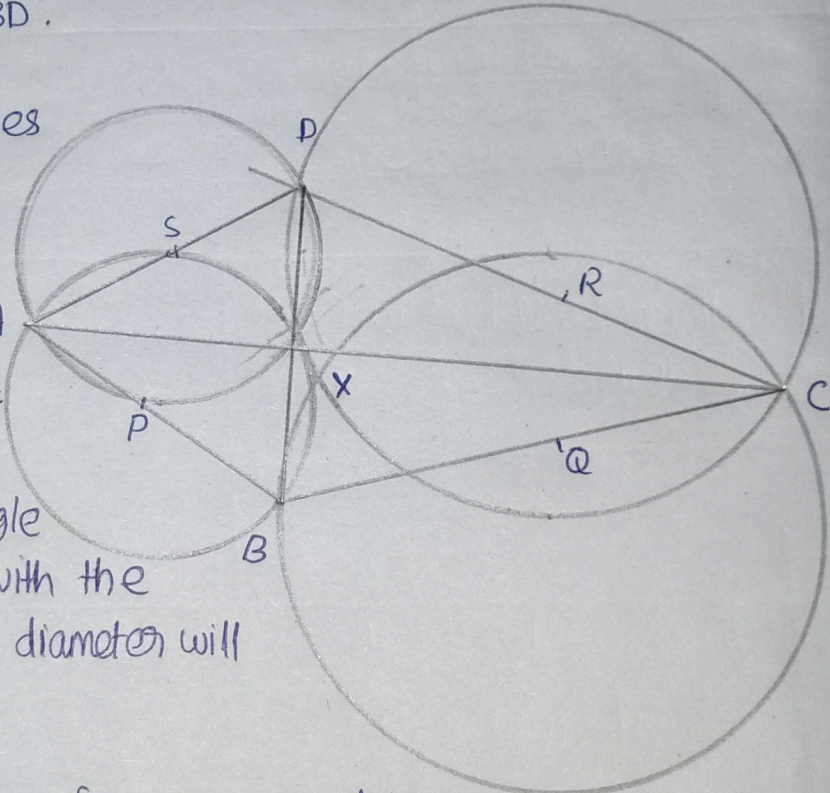 BD.
es
D
S
R
X
C
P
Q
B
gle
with the
diameter will